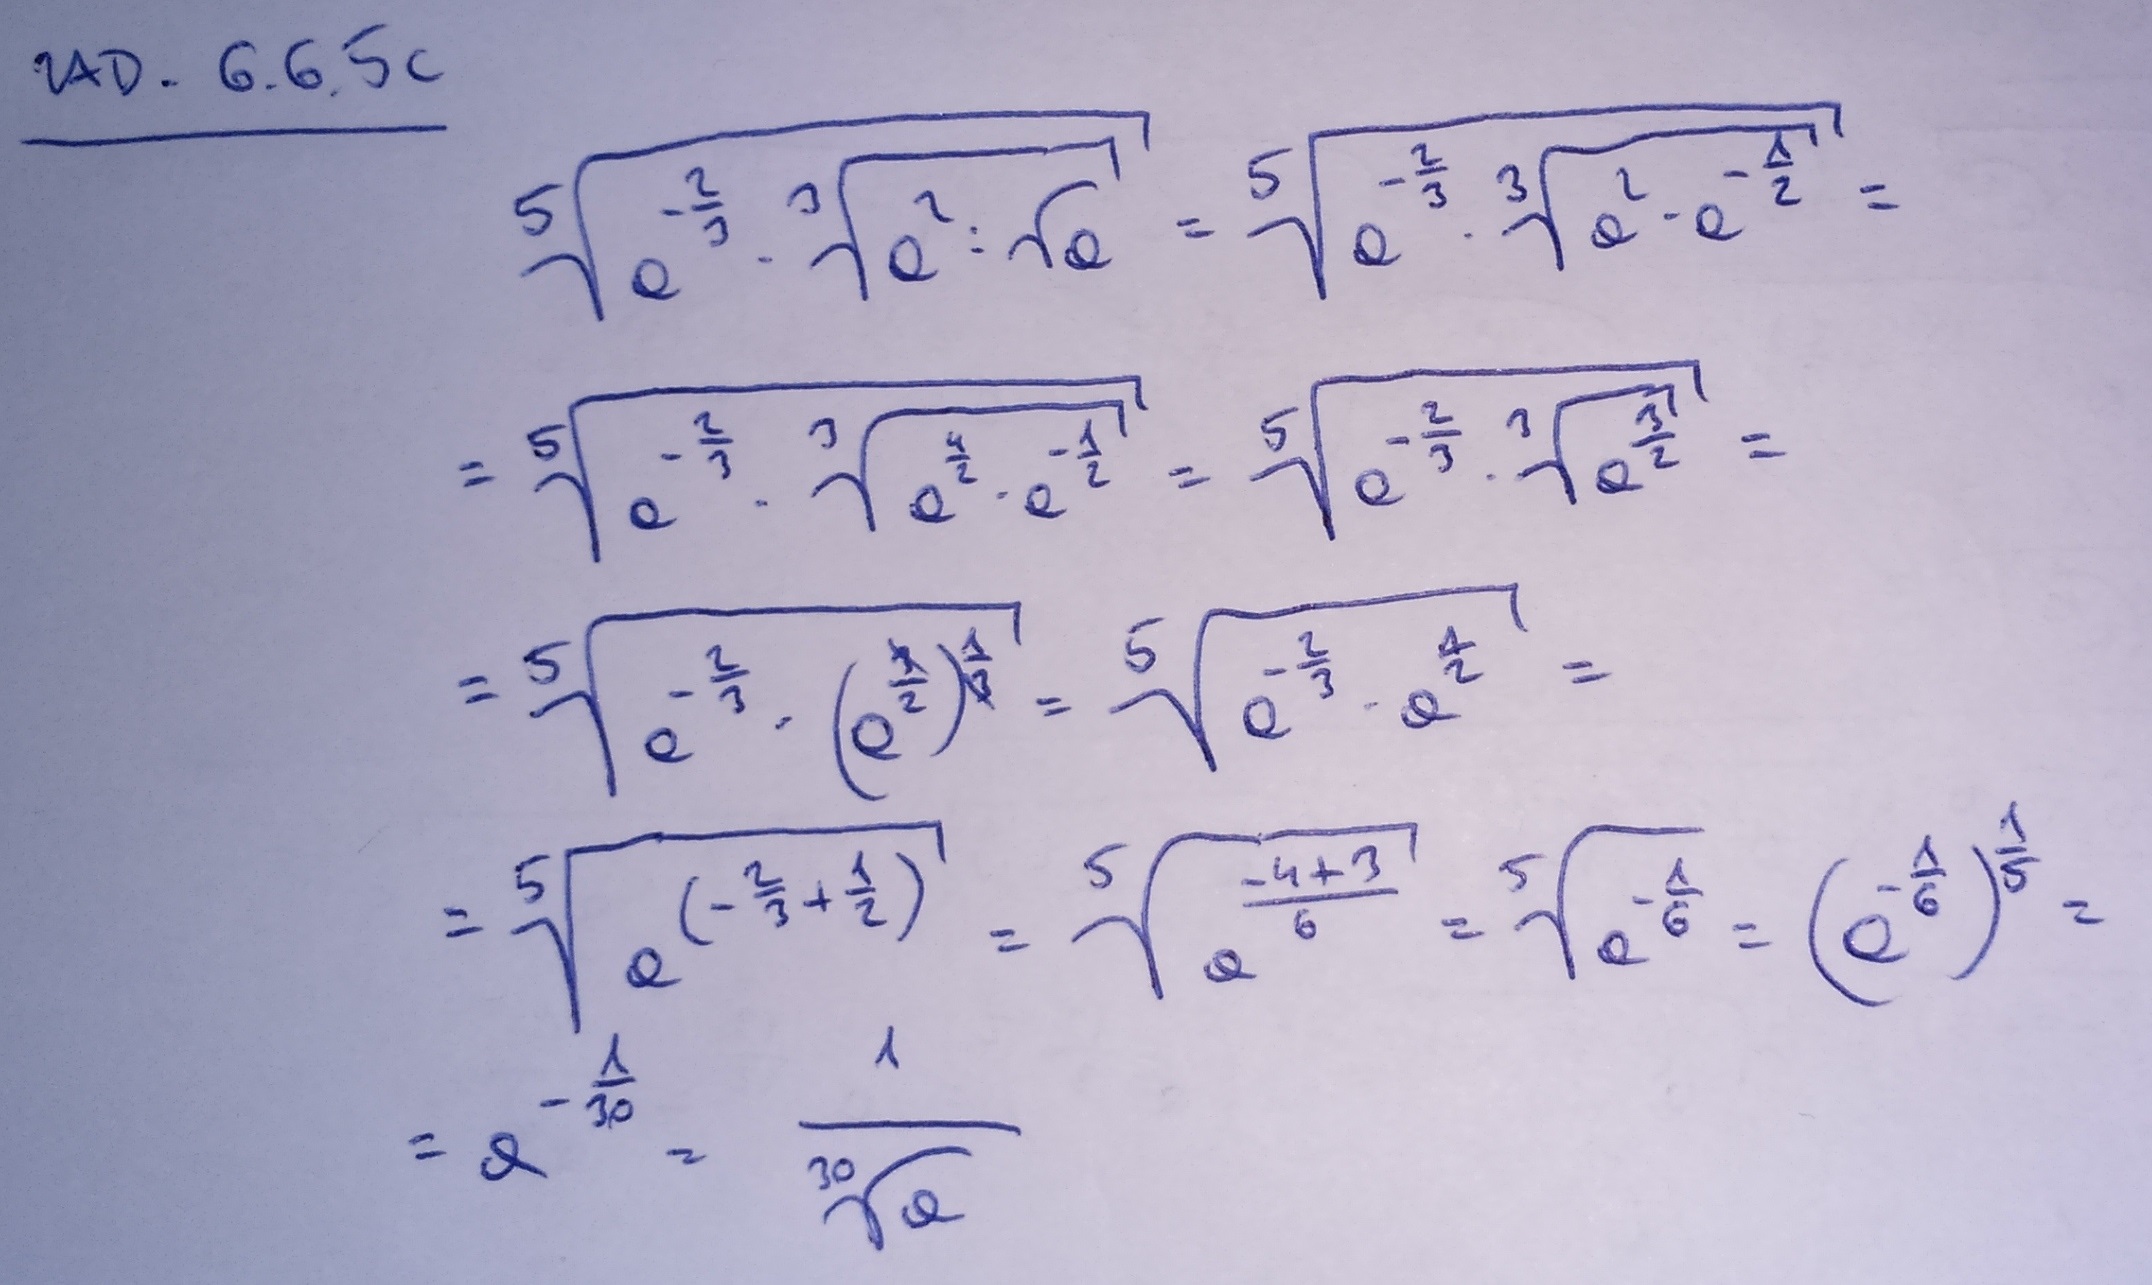 ZAD. 6.6.5c
⁵√(e^(-2/3) · ³√(e² : √e)) = ⁵√(e^(-2/3) · ³√(e² · e^(-1/2))) =
= ⁵√(e^(-2/3) · ³√(e^(4/2) · e^(-1/2))) = ⁵√(e^(-2/3) · ³√(e^(3/2))) =
= ⁵√(e^(-2/3) · (e^(3/2))^(1/3)) = ⁵√(e^(-2/3) · e^(1/2)) =
= ⁵√(e^(-2/3 + 1/2)) = ⁵√(e^((-4+3)/6)) = ⁵√(e^(-1/6)) = (e^(-1/6))^(1/5) =
= e^(-1/30) = 1/³⁰√e